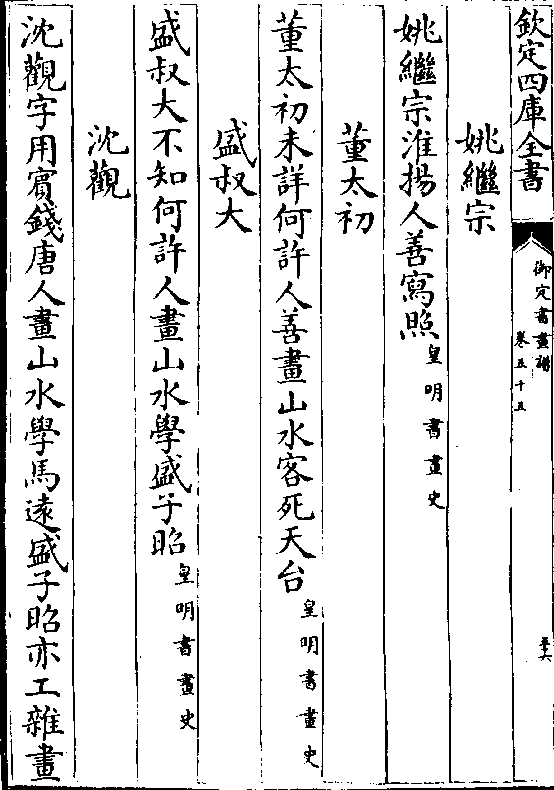 欽定四庫全書
御定書畫譜
卷五十五
五十六
姚繼宗
姚繼宗淮揚人善寫照皇明書畫史
董太初
董太初未詳何許人善畫山水客死天台皇明書畫史
盛叔大
盛叔大不知何許人畫山水學盛子昭皇明書畫史
沈觀
沈觀字用賓錢唐人畫山水學馬遠盛子昭亦工雜畫